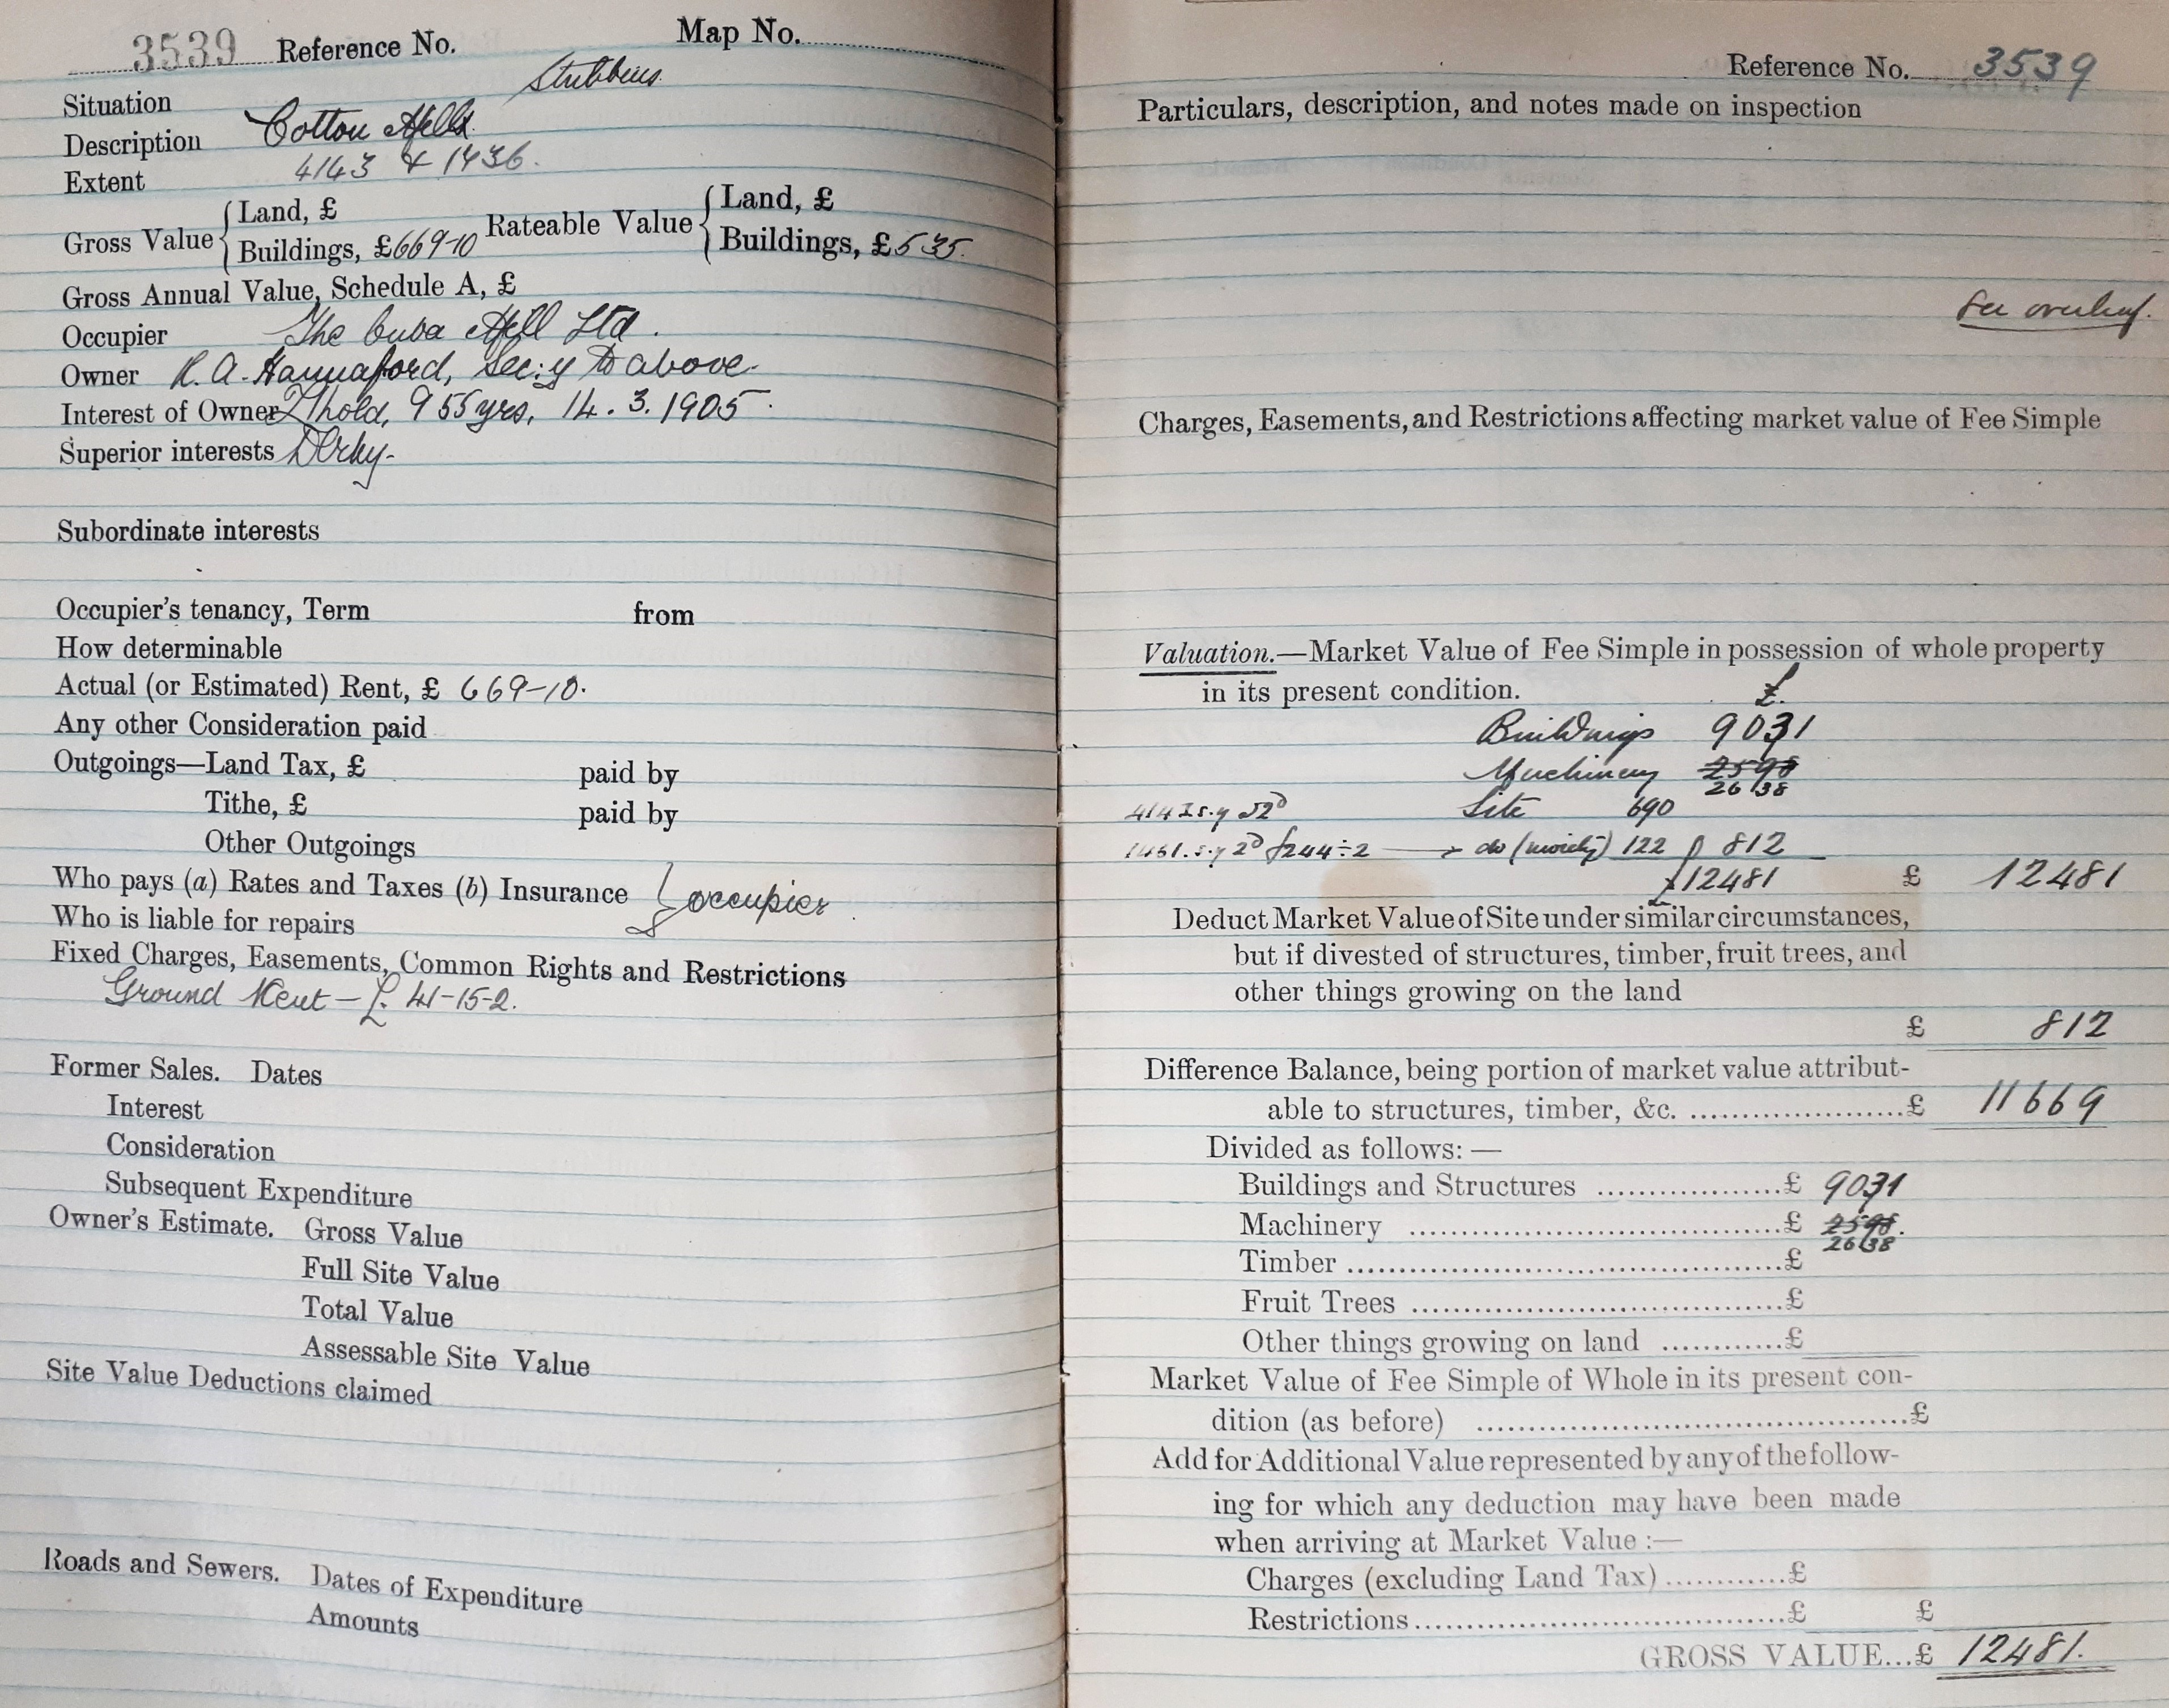 3539 Reference No. Map No.
Situation Stubbins
Description Cotton Mills
Extent 4143 & 1436.
Gross Value { Land, £ Rateable Value { Land, £
Buildings, £669-10 Buildings, £535.
Gross Annual Value, Schedule A, £
Occupier The Cuba Mill Ltd.
Owner R. A. Hannaford, Sec:y to above.
Interest of Owner L'hold, 955 yrs, 14.3.1905.
Superior interests Derby-
Subordinate interests
Occupier's tenancy, Term from
How determinable
Actual (or Estimated) Rent, £ 669-10.
Any other Consideration paid
Outgoings—Land Tax, £ paid by
Tithe, £ paid by
Other Outgoings
Who pays (a) Rates and Taxes (b) Insurance } occupier
Who is liable for repairs
Fixed Charges, Easements, Common Rights and Restrictions
Ground Rent — £. 41-15-2.
Former Sales. Dates
Interest
Consideration
Subsequent Expenditure
Owner's Estimate. Gross Value
Full Site Value
Total Value
Assessable Site Value
Site Value Deductions claimed
Roads and Sewers. Dates of Expenditure
Amounts
Reference No. 3539
Particulars, description, and notes made on inspection
See overleaf.
Charges, Easements, and Restrictions affecting market value of Fee Simple
Valuation.—Market Value of Fee Simple in possession of whole property
in its present condition. £.
Buildings 9031
Machinery 2598
2638
Site 690
s.y 2D £244÷2 do (moiety) 122 812
£12481 £ 12481
Deduct Market Value of Site under similar circumstances,
but if divested of structures, timber, fruit trees, and
other things growing on the land
£ 812
Difference Balance, being portion of market value attribut-
able to structures, timber, &c. ....................£ 11669
Divided as follows: —
Buildings and Structures ..................£ 9031
Machinery ....................................£ 2598.
2638
Timber ..........................................£
Fruit Trees ....................................£
Other things growing on land ............£
Market Value of Fee Simple of Whole in its present con-
dition (as before) ..........................................£
Add for Additional Value represented by any of the follow-
ing for which any deduction may have been made
when arriving at Market Value :—
Charges (excluding Land Tax)............£
Restrictions....................................£ £
GROSS VALUE...£ 12481.